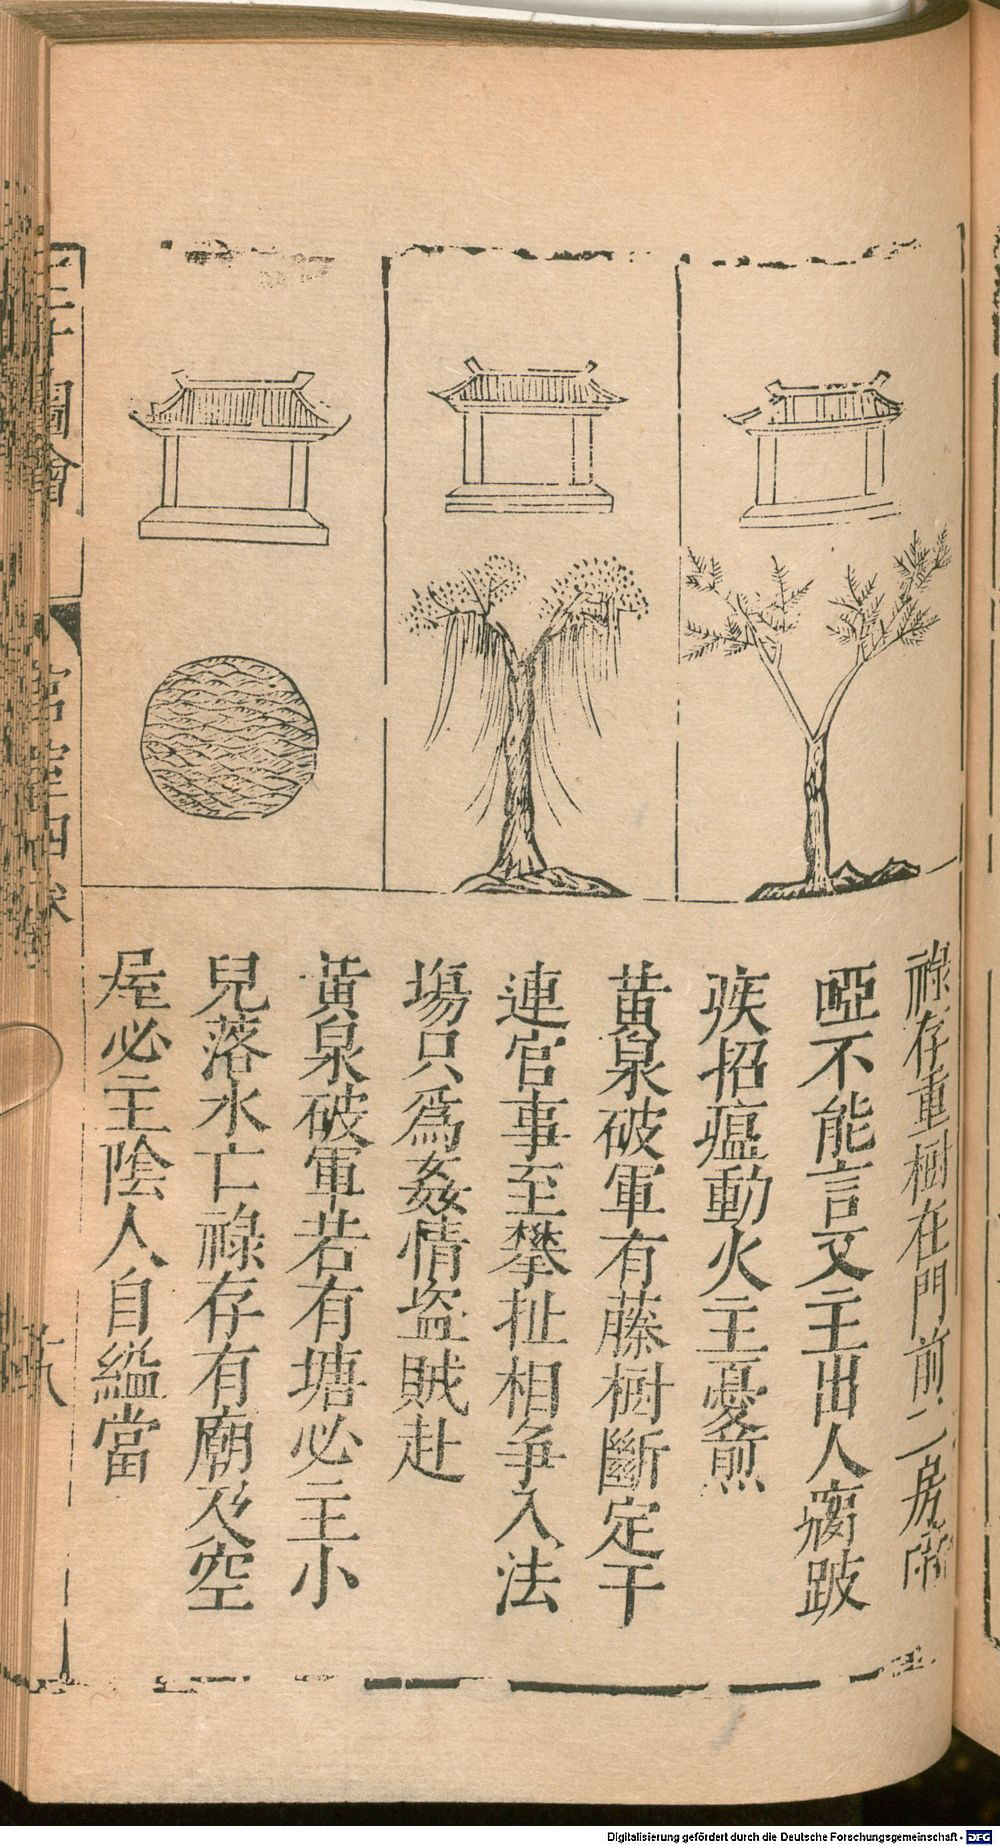 祿存重樹在門前二房常
啞不能言又主出人㾨跛
疾招瘟動火主憂煎
黃泉破軍有藤樹斷定干
連官事至攀扯相爭入法
場只爲姦情盜賊赴
黃泉破軍若有塘必主小
兒落水亡祿存有廟及空
屋必主陰人自縊當
三才圖會
宮室四卷
Digitalisierung gefördert durch die Deutsche Forschungsgemeinschaft - DFG